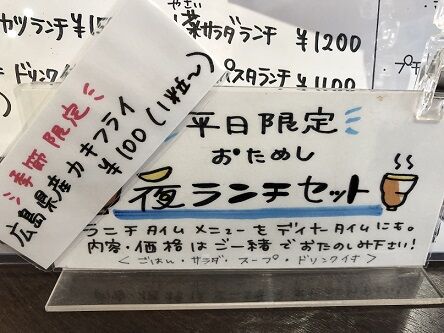 カツランチ ¥1
やさい
菜サラダランチ ¥1200
ドリンク
パスタランチ ¥1100
プチ
季節限定
広島県産カキフライ
¥100(1粒〜)
平日限定
おためし
夜ランチセット
ランチタイムメニューをディナータイムにも。
内容・価格はご一緒でおたのしみ下さい!
<ごはん・サラダ・スープ・ドリンク付>